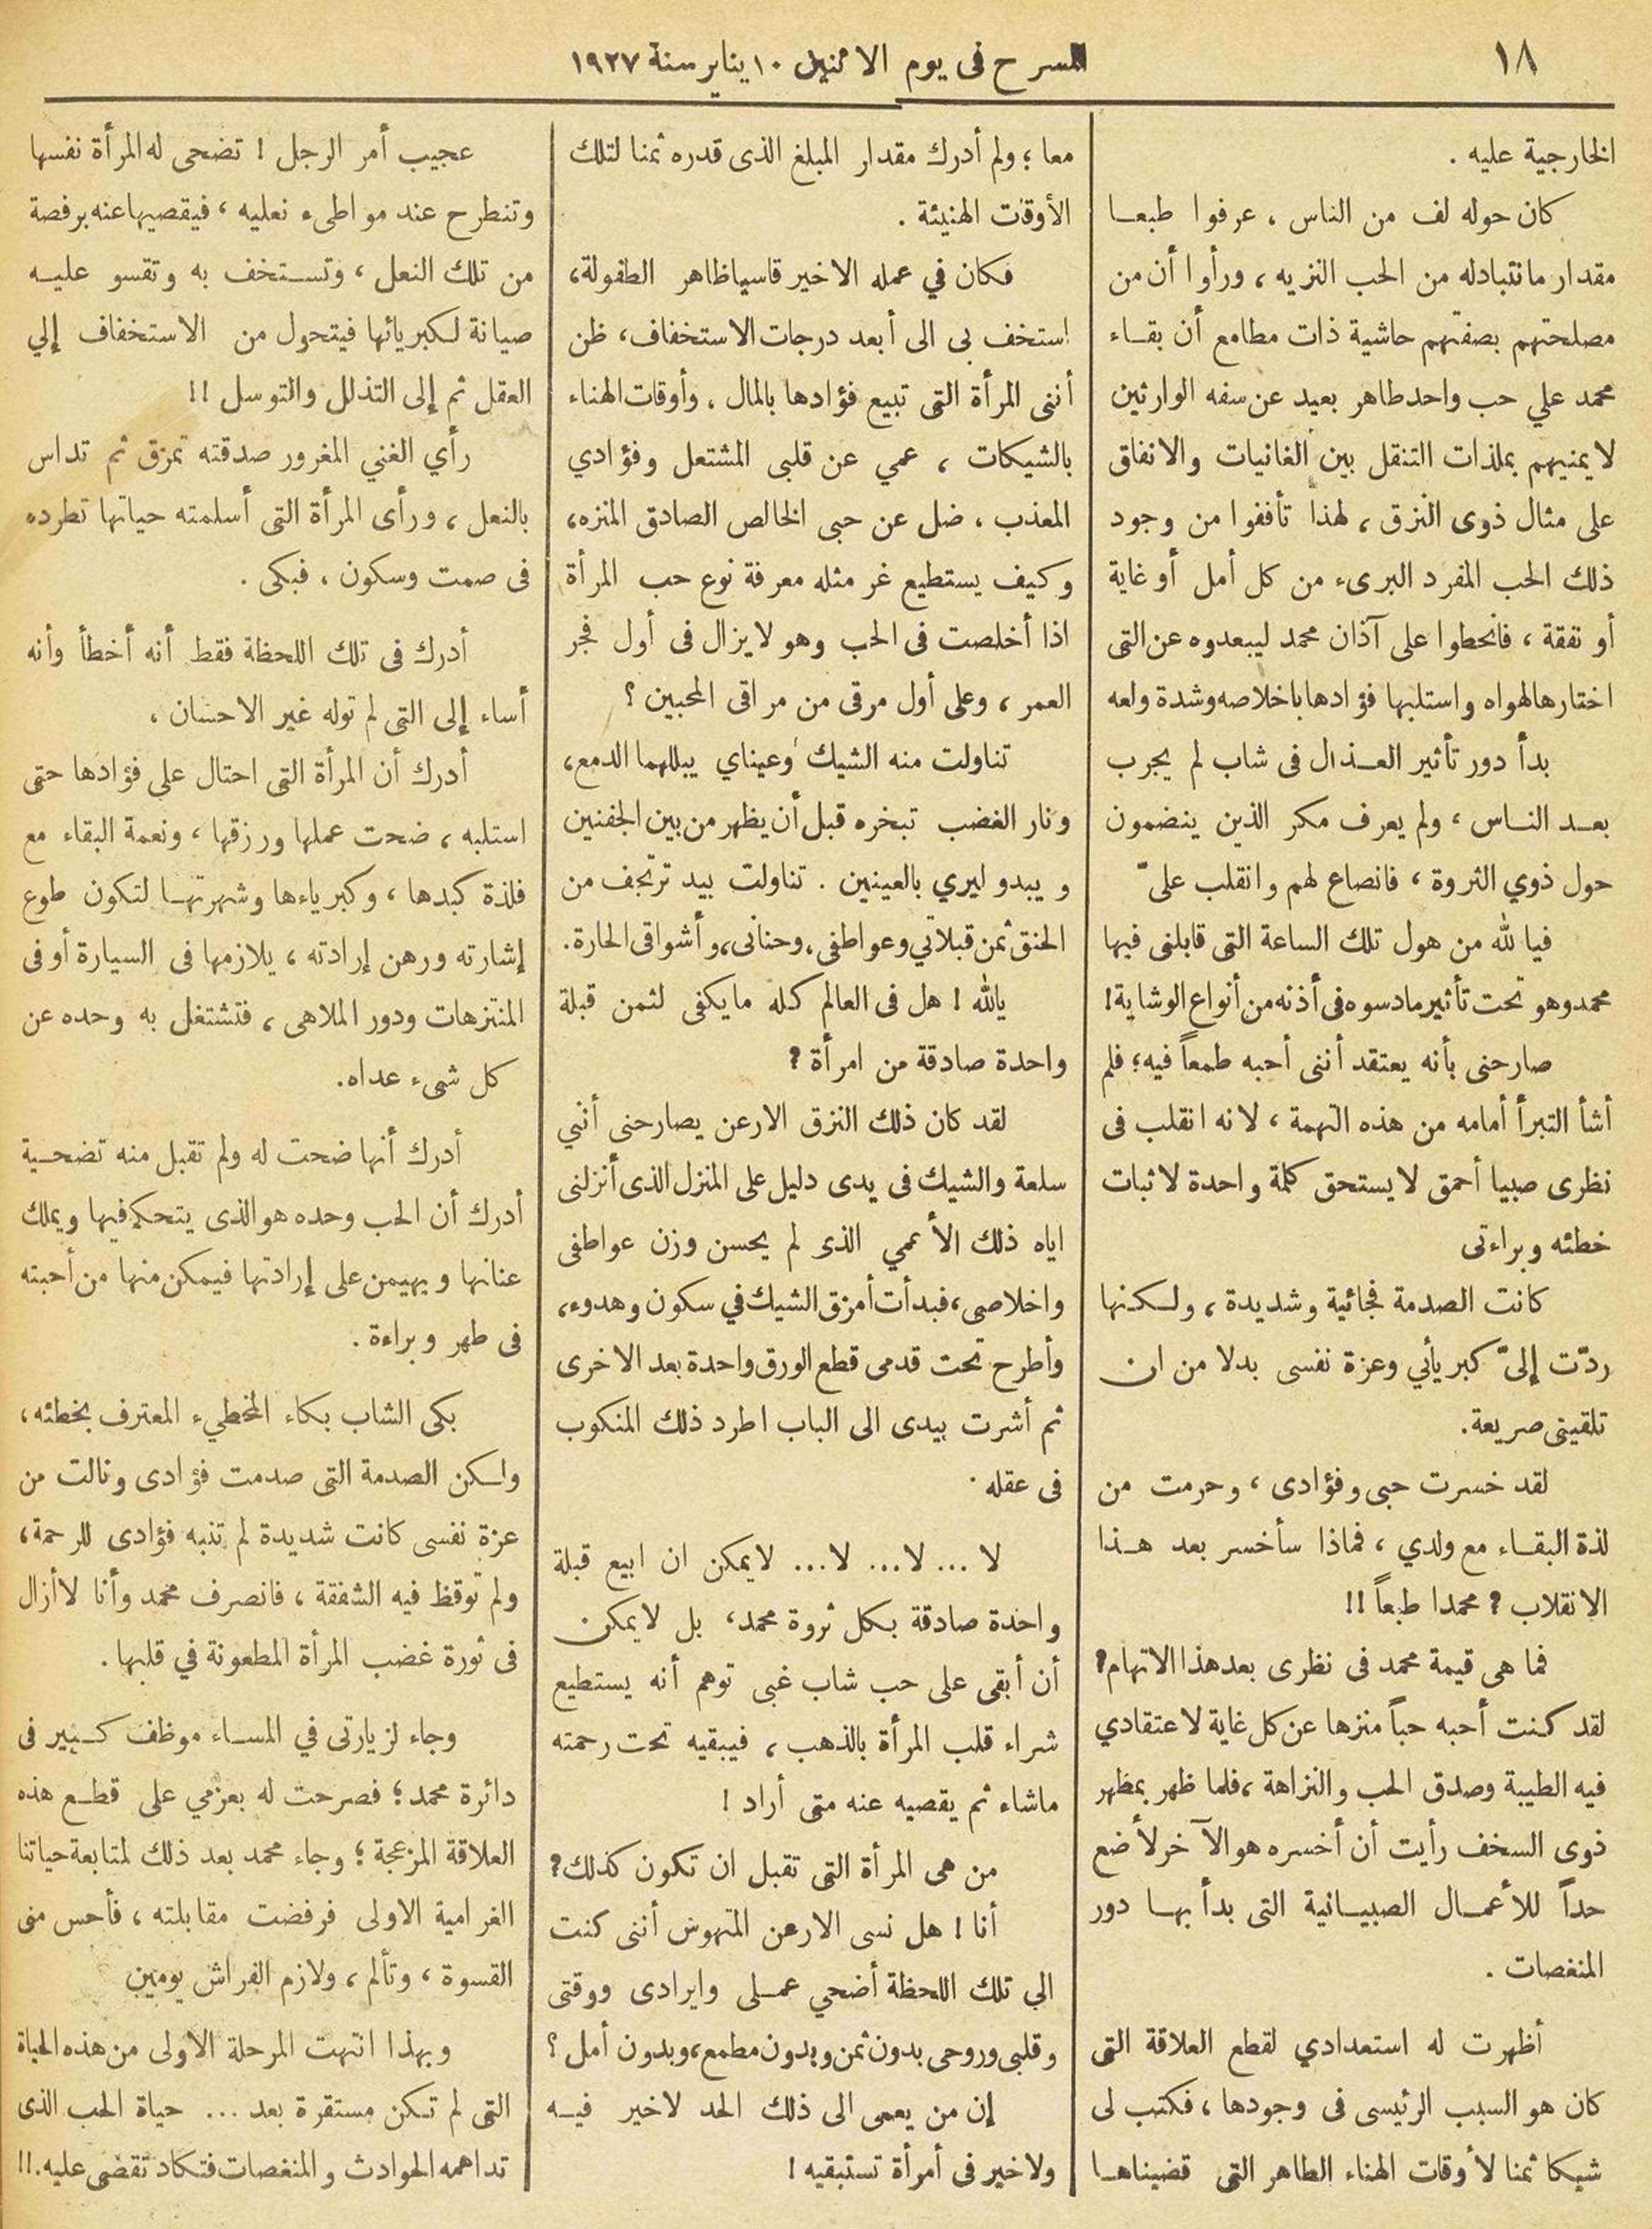 ١٨
المسرح فى يوم الاثنين ١٠ يناير سنة ١٩٢٧
الخارجية عليه .
كان حوله لف من الناس ، عرفوا طبعا
مقدار ما نتبادله من الحب النزيه ، ورأوا أن من
مصلحتهم بصفتهم حاشية ذات مطامع أن بقاء
محمد علي حب واحد طاهر بعيد عن سفه الوارثين
لا يمنيهم بملذات التنقل بين الغانيات والانفاق
على مثال ذوى النزق ، لهذا تأففوا من وجود
ذلك الحب المفرد البرىء من كل أمل أو غاية
أو نفقة ، فانحطوا على آذان محمد ليبعدوه عن التى
اختارها لهواه واستلبها فؤادها باخلاصه وشدة ولعه
بدأ دور تأثير العذال فى شاب لم يجرب
بعد الناس ، ولم يعرف مكر الذين ينضمون
حول ذوي الثروة ، فانصاع لهم وانقلب علىّ
فيا لله من هول تلك الساعة التى قابلنى فيها
محمد وهو تحت تأثير مادسوه فى أذنه من أنواع الوشاية !
صارحنى بأنه يعتقد أننى أحبه طمعاً فيه ؛ فلم
أشأ التبرأ أمامه من هذه التهمة ، لانه انقلب فى
نظرى صبيا أحمق لا يستحق كلمة واحدة لاثبات
خطئه وبراءتى
كانت الصدمة فجائية وشديدة ، ولكنها
ردّت إلىّ كبريأئي وعزة نفسى بدلا من ان
تلقينى صريعة .
لقد خسرت حبى وفؤادى ، وحرمت من
لذة البقاء مع ولدي ، فماذا سأخسر بعد هذا
الانقلاب ؟ محمدا طبعاً !!
فما هى قيمة محمد فى نظرى بعد هذا الاتهام ؟
لقد كنت أحبه حباً منزها عن كل غاية لاعتقادي
فيه الطيبة وصدق الحب والنزاهة ، فلما ظهر بمظهر
ذوى السخف رأيت أن أخسره هو الآخر لأضع
حداً للأعمال الصبيانية التى بدأ بها دور
المنغصات .
أظهرت له استعدادي لقطع العلاقة التى
كان هو السبب الرئيسى فى وجودها ، فكتب لى
شيكا ثمنا لأوقات الهناء الطاهر التى قضيناها
معا ؛ ولم أدرك مقدار المبلغ الذى قدره ثمنا لتلك
الأوقات الهنيئة .
فكان في عمله الاخير قاسيا ظاهر الطفولة ،
استخف بى الى أبعد درجات الاستخفاف ، ظن
أننى المرأة التى تبيع فؤادها بالمال ، وأوقات الهناء
بالشيكات ، عمي عن قلبى المشتعل وفؤادي
المعذب ، ضل عن حبى الخالص الصادق المنزه ،
وكيف يستطيع غر مثله معرفة نوع حب المرأة
اذا أخلصت فى الحب وهو لا يزال فى أول فجر
العمر ، وعلى أول مرقى من مراقى المحبين ؟
تناولت منه الشيك وعيناي يبللهما الدمع ،
ونار الغضب تبخره قبل أن يظهر من بين الجفنين
و يبدو ليري بالعينين . تناولت بيد ترتجف من
الحنق ثمن قبلاتي وعواطفى ، وحنانى ، وأشواقى الحارة .
يالله ! هل فى العالم كله ما يكفى لثمن قبلة
واحدة صادقة من امرأة ؟
لقد كان ذلك النزق الارعن يصارحنى أننى
سلعة والشيك فى يدى دليل على المنزل الذى أنزلنى
اياه ذلك الأعمي الذى لم يحسن وزن عواطفى
واخلاصى ، فبدأت أمزق الشيك في سكون وهدوء ،
وأطرح تحت قدمى قطع الورق واحدة بعد الاخرى
ثم أشرت بيدى الى الباب اطرد ذلك المنكوب
فى عقله .
لا ... لا ... لا ... لا يمكن ان ابيع قبلة
واحدة صادقة بكل ثروة محمد ، بل لا يمكن
أن أبقى على حب شاب غبى توهم أنه يستطيع
شراء قلب المرأة بالذهب ، فيبقيه تحت رحمته
ماشاء ثم يقصيه عنه متى أراد !
من هى المرأة التى تقبل ان تكون كذلك ؟
أنا ! هل نسى الارعن المتهوش أننى كنت
الي تلك اللحظة أضحي عملى وايرادى ووقتى
وقلبى وروحى بدون ثمن وبدون مطمع ، وبدون أمل ؟
إن من يعمى الى ذلك الحد لاخير فيه
ولا خير فى أمرأة تستبقيه !
عجيب أمر الرجل ! تضحى له المرأة نفسها
وتنطرح عند مواطىء نعليه ، فيقصيها عنه برفصة
من تلك النعل ، وتستخف به وتقسو عليه
صيانة لكبريائها فيتحول من الاستخفاف إلي
العقل ثم إلى التذلل والتوسل !!
رأي الغني المغرور صدقته تمزق ثم تداس
بالنعل ، ورأى المرأة التى أسلمته حياتها تطرده
فى صمت وسكون ، فبكى .
أدرك فى تلك اللحظة فقط أنه أخطأ وأنه
أساء إلى التى لم توله غير الاحسان ،
أدرك أن المرأة التى احتال على فؤادها حتى
استلبه ، ضحت عملها ورزقها ، ونعمة البقاء مع
فلذة كبدها ، وكبرياءها وشهرتها لتكون طوع
إشارته ورهن إرادته ، يلازمها فى السيارة أوفى
المنتزهات ودور الملاهى ، فتشتغل به وحده عن
كل شىء عداه .
أدرك أنها ضحت له ولم تقبل منه تضحية
أدرك أن الحب وحده هو الذى يتحكم فيها ويملك
عنانها ويهيمن على إرادتها فيمكن منها من أحبته
فى طهر وبراءة .
بكى الشاب بكاء المخطيء المعترف بخطئه ،
ولكن الصدمة التى صدمت فؤادى ونالت من
عزة نفسى كانت شديدة لم تنبه فؤادى للرحمة ،
ولم توقظ فيه الشفقة ، فانصرف محمد وأنا لاأزال
فى ثورة غضب المرأة المطعونة في قلبها .
وجاء لزيارتى في المساء موظف كبير فى
دائرة محمد ؛ فصرحت له بعزمي على قطع هذه
العلاقة المزعجة ؛ وجاء محمد بعد ذلك لمتابعة حياتنا
الغرامية الاولى فرفضت مقابلته ، فأحس منى
القسوة ، وتألم ، ولازم الفراش يومين
وبهذا انتهت المرحلة الاولى من هذه الحياة
التى لم تكن مستقرة بعد ... حياة الحب الذى
تداهمه الحوادث والمنغصات فتكاد تقضى عليه .!!